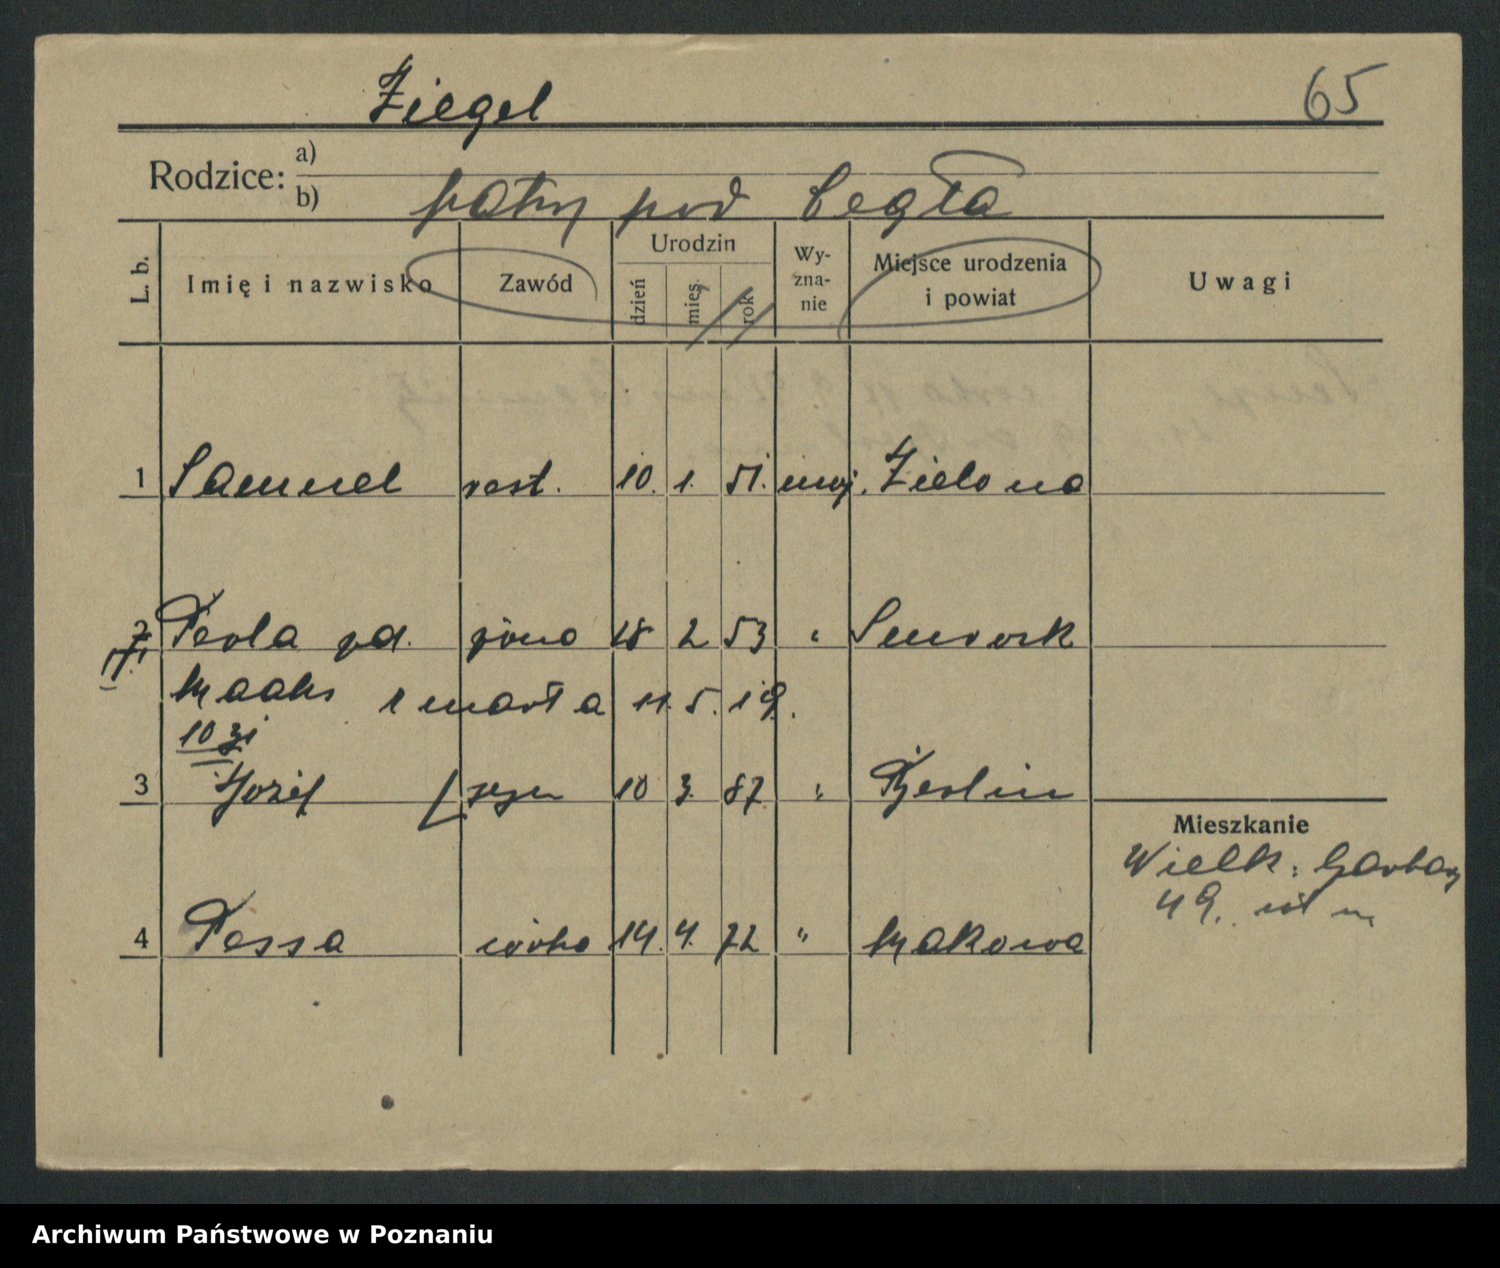 Ziegel 65
Rodzice: a)
b) patrz pod Cegła
L. b. Imię i nazwisko Zawód Urodzin dzień mies. rok Wyznanie Miejsce urodzenia i powiat Uwagi
1 Samuel rest. 10. 1. 51. mojż. Zielona
2 Perla zd. żona 18 2 53 " 
Maaks zmarła 11. 5. 19.
3 Józef syn 10 3. 87 " Berlin
Mieszkanie
Wielk. Garbary
49.
4 córka 14. 4. 72 " Makowa
Archiwum Państwowe w Poznaniu